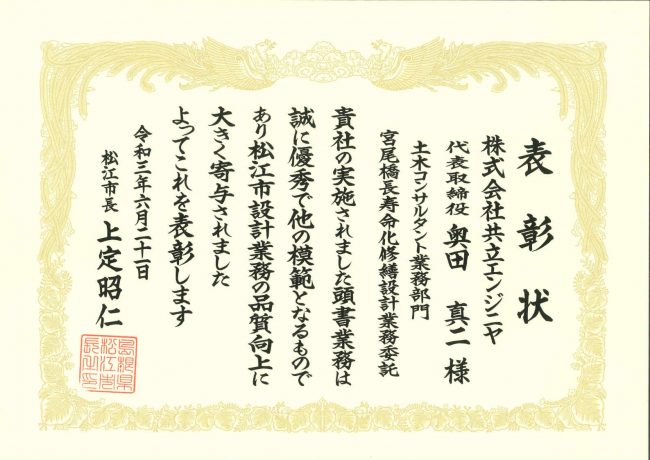 表彰状
株式会社共立エンジニヤ
代表取締役 奥田 真二 様
土木コンサルタント業務部門
宮尾橋長寿命化修繕設計業務委託
貴社の実施されました頭書業務は
誠に優秀で他の模範となるもので
あり松江市設計業務の品質向上に
大きく寄与されました
よってこれを表彰します
令和三年六月二十一日
松江市長 上定昭仁
島根県
松江市
長之印